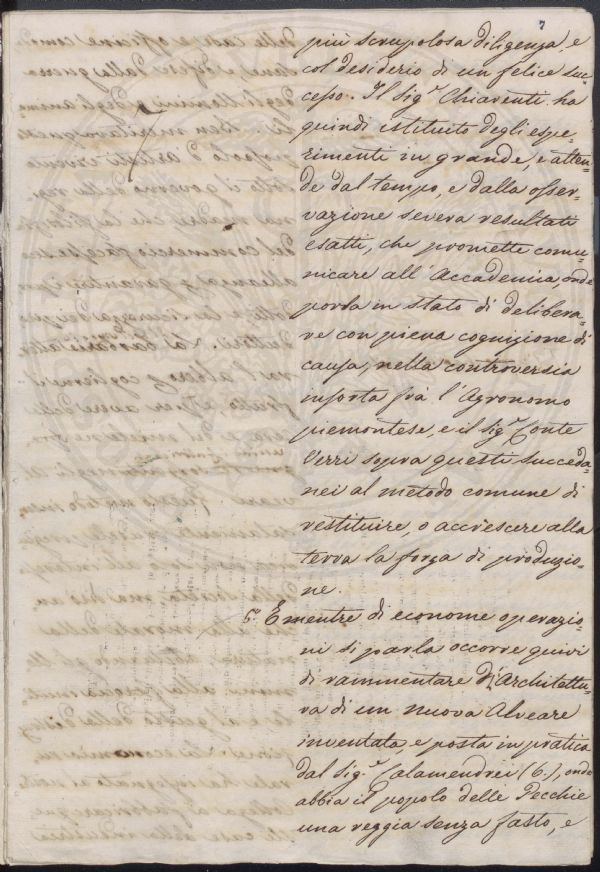 7
più scrupolosa diligenza, e
col desiderio di un felice suc-
cesso. Il Sig.r Chiarenti, ha
quindi istituito degli espe-
rimenti in grande, e atten-
de dal tempo, e dalla osser-
vazione severa resultati
esatti, che promette comu-
nicare all'Accademia, onde
porla in stato di delibera-
re con piena cognizione di
causa, nella controversia
insorta frà l'Agronomo
piemontese, e il Sig.r Conte
Verri sopra questi succeda-
nei al metodo comune di
restituire, o accrescere alla
terra la forza di produzio-
ne.
6.o E mentre di econome operazio-
ni si parla occorre quivi
di rammentare d'Architettu-
ra di un nuova Alveare
inventata, e posta in pratica
dal Sig.r Calamendrei (6.), onde
abbia il popolo delle Pecchie
una reggia senza fasto, e